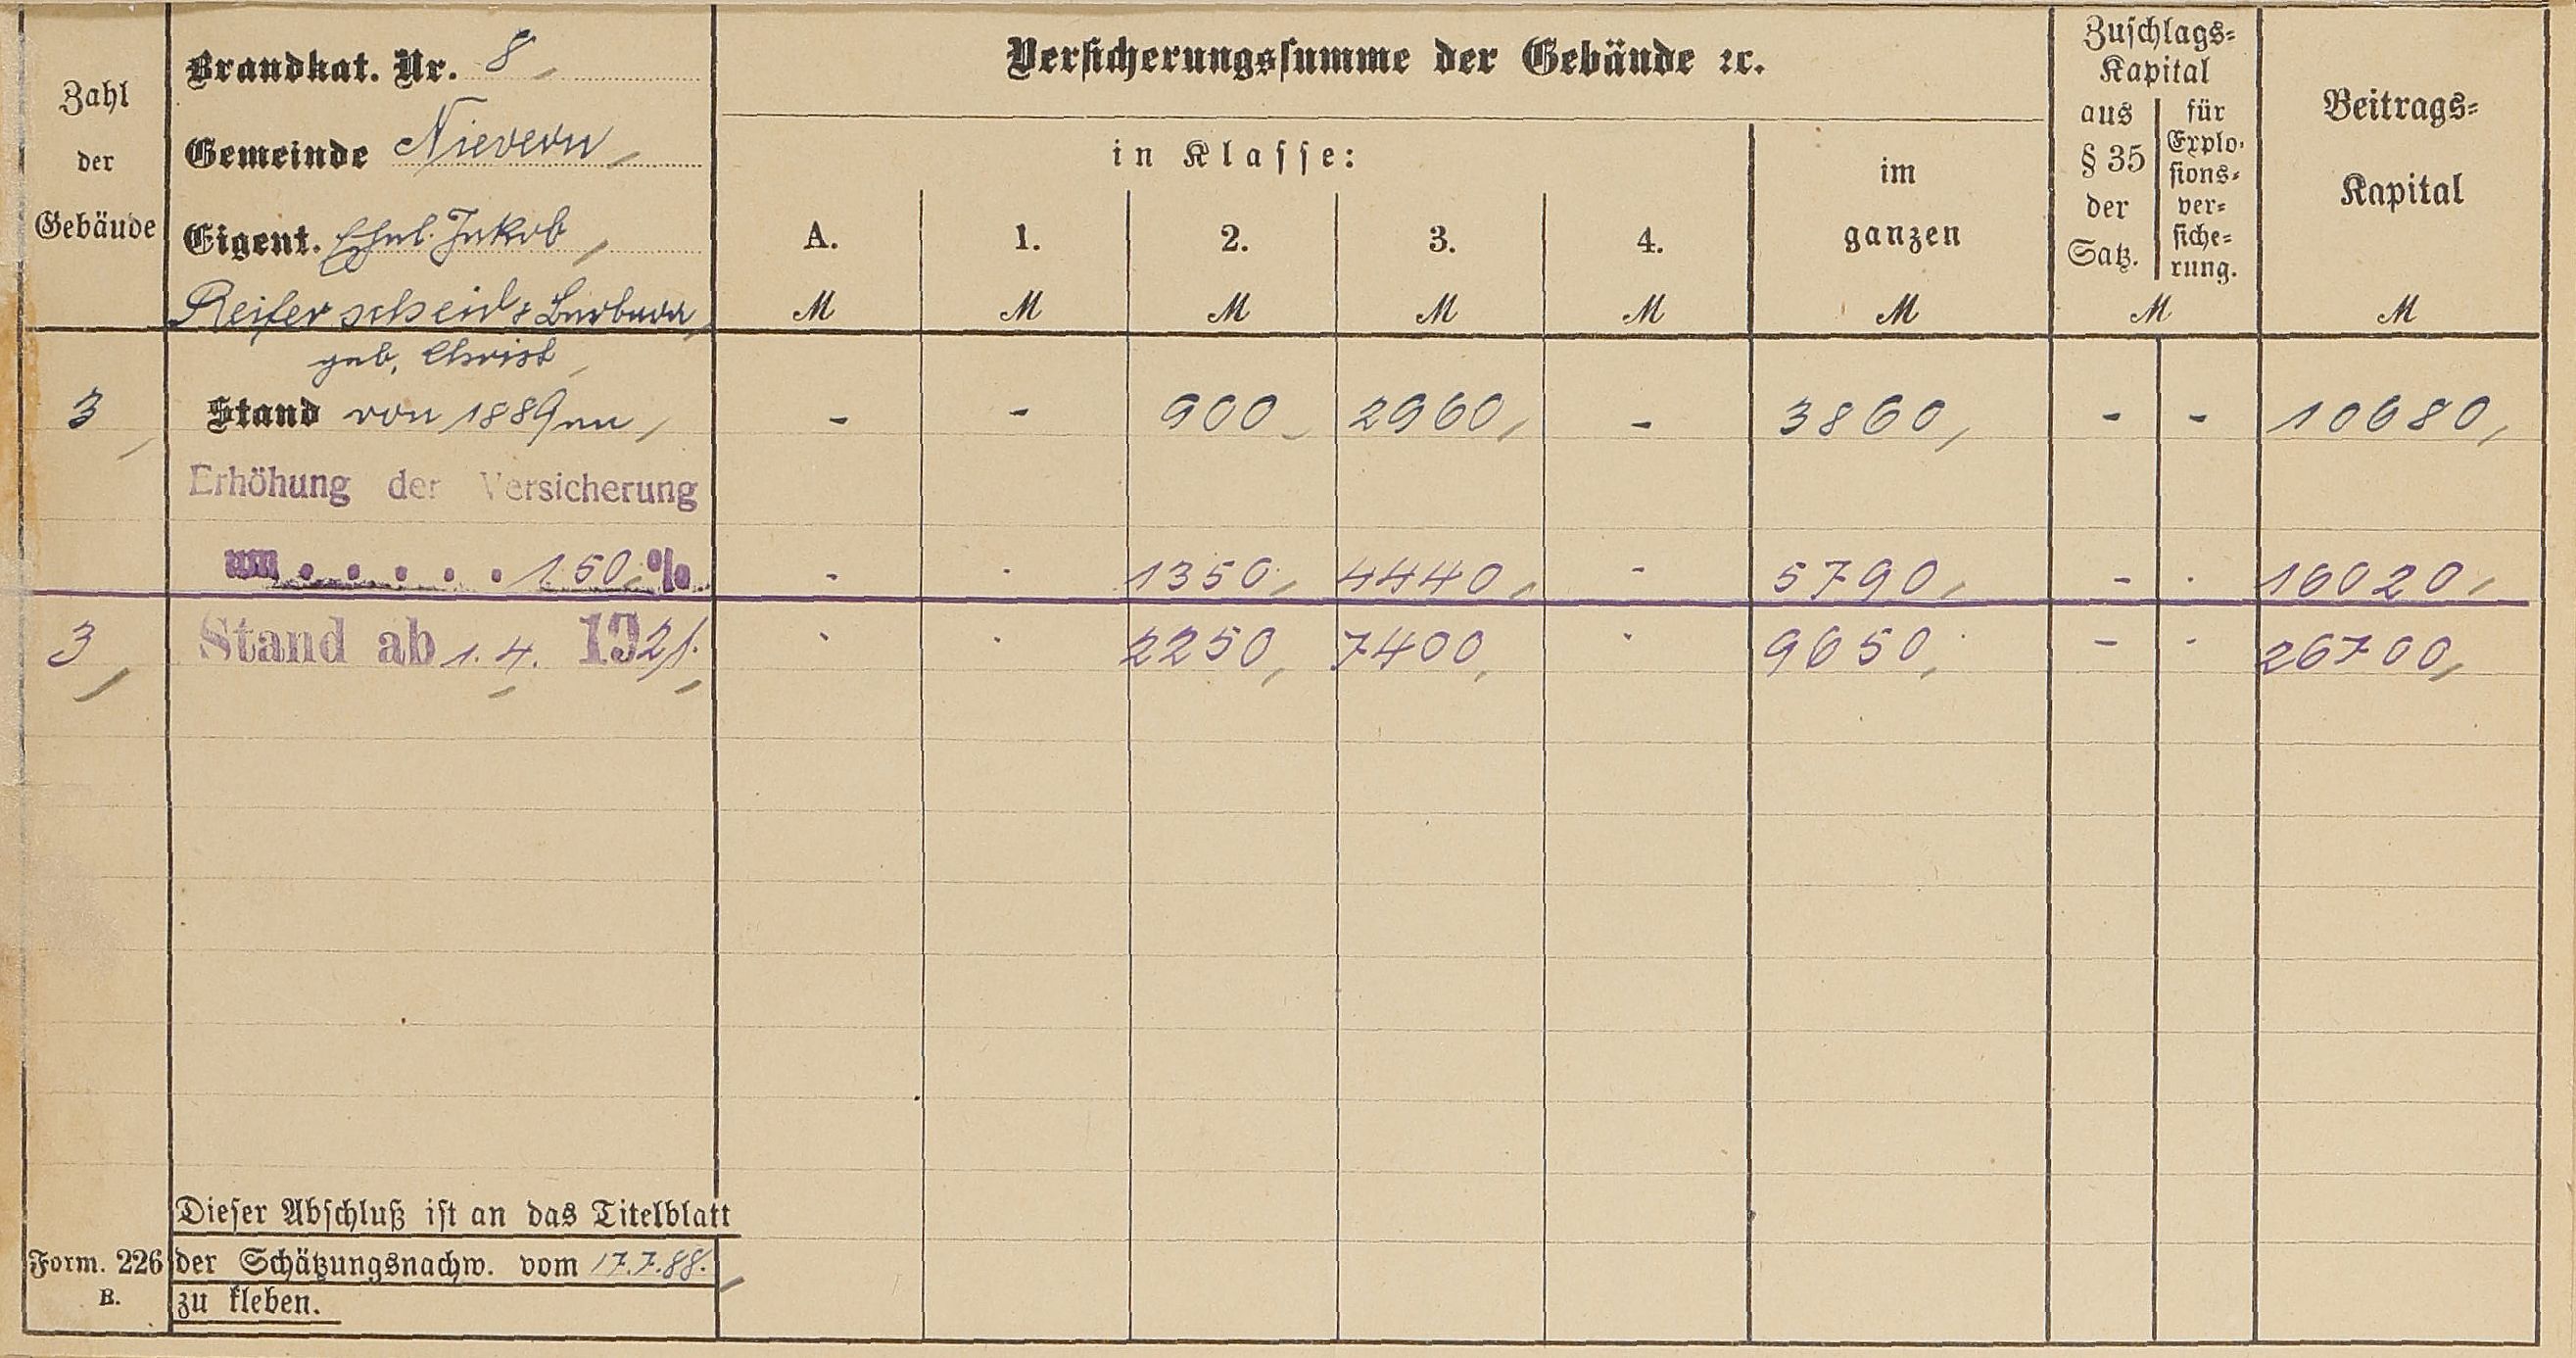 Zahl
der
Gebäude
Brandkat. Nr. 8,
Gemeinde Nievern,
Eigent. Ehel. Jakob,
Reiferscheid & Barbara,
geb. Christ,
Versicherungssumme der Gebäude ꝛc.
in Klasse:
A. 1. 2. 3. 4.
im
ganzen
Zuschlags-
Kapital
aus
§ 35
der
Satz.
für
Explo-
sions-
ver-
siche-
rung.
Beitrags-
Kapital
M M M M M M M M
3, Stand von 1889 an, - - 900 2960, - 3860, - - 10680,
Erhöhung der Versicherung
um . . . . . 150, % - - 1350, 4440, - 5790, - - 16020,
3, Stand ab 1. 4. 1921. - - 2250, 7400, - 9650, - - 26700,
Dieser Abschluß ist an das Titelblatt
Form. 226 der Schätzungsnachw. vom 17.7.88.,
B. zu kleben.